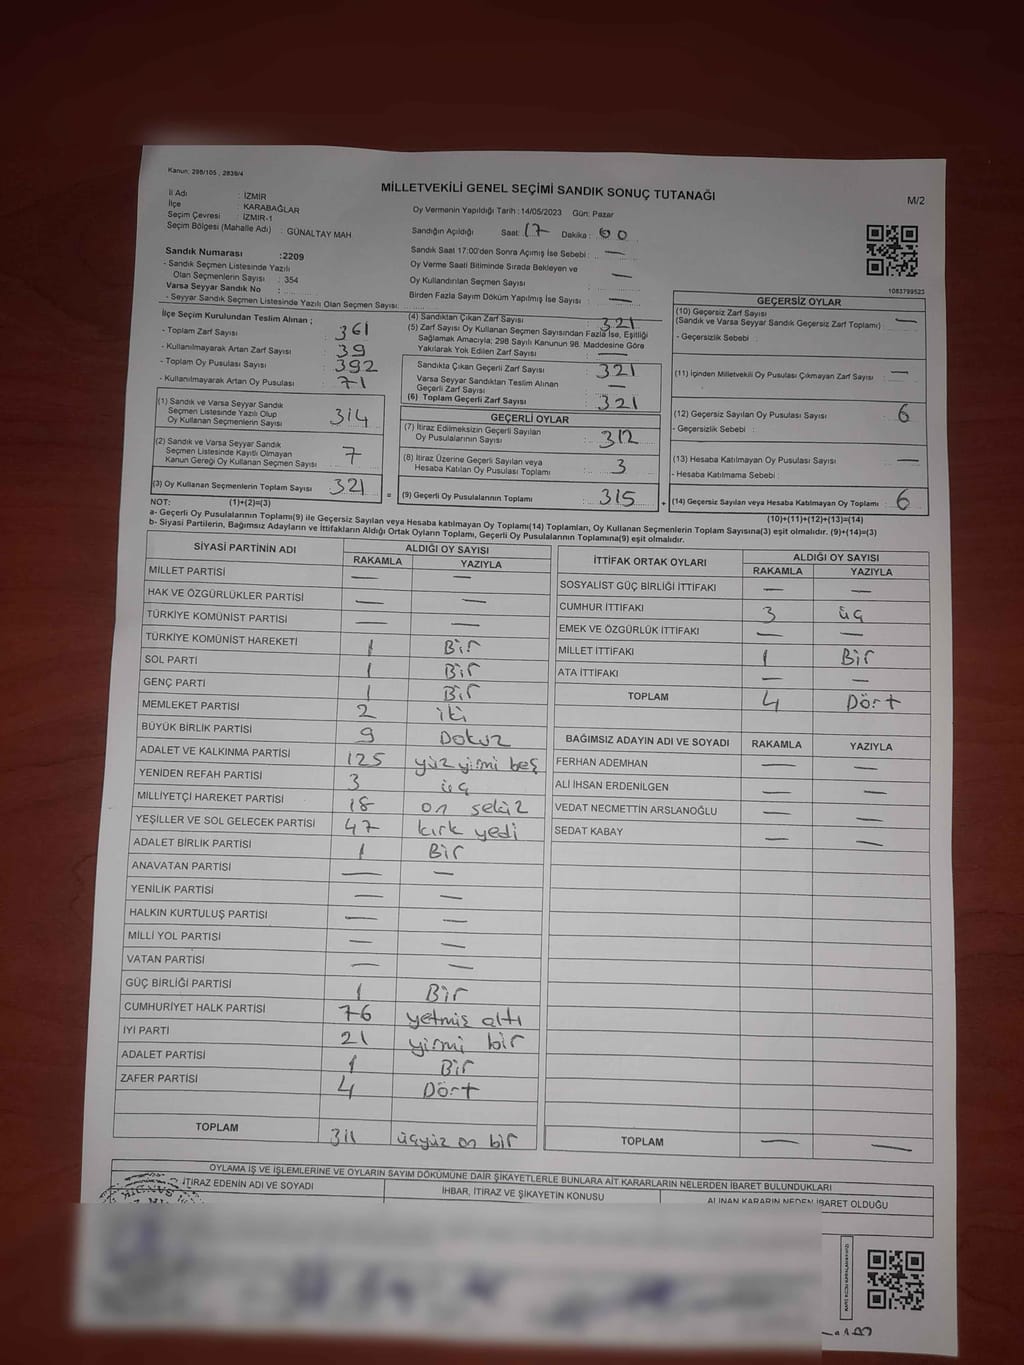 Kanun: 298/105 , 2839/4
MİLLETVEKİLİ GENEL SEÇİMİ SANDIK SONUÇ TUTANAĞI
M/2
İl Adı : İZMİR
İlçe : KARABAĞLAR
Seçim Çevresi : İZMİR-1
Seçim Bölgesi (Mahalle Adı) : GÜNALTAY MAH.
Oy Vermenin Yapıldığı Tarih : 14/05/2023 Gün: Pazar
Sandığın Açıldığı Saat : 17 Dakika : 00
Sandık Saat 17:00'den Sonra Açılmış İse Sebebi : —
Oy Verme Saati Bitiminde Sırada Bekleyen ve
Oy Kullandırılan Seçmen Sayısı : —
Birden Fazla Sayım Döküm Yapılmış İse Sayısı : —
Sandık Numarası :2209
- Sandık Seçmen Listesinde Yazılı
Olan Seçmenlerin Sayısı : 354
Varsa Seyyar Sandık No :
- Seyyar Sandık Seçmen Listesinde Yazılı Olan Seçmen Sayısı:
1083799523
İlçe Seçim Kurulundan Teslim Alınan ;
- Toplam Zarf Sayısı : 361
- Kullanılmayarak Artan Zarf Sayısı : 39
- Toplam Oy Pusulası Sayısı : 392
- Kullanılmayarak Artan Oy Pusulası : 71
(1) Sandık ve Varsa Seyyar Sandık
Seçmen Listesinde Yazılı Olup
Oy Kullanan Seçmenlerin Sayısı : 314
(2) Sandık ve Varsa Seyyar Sandık
Seçmen Listesinde Kayıtlı Olmayan
Kanun Gereği Oy Kullanan Seçmen Sayısı : 7
(3) Oy Kullanan Seçmenlerin Toplam Sayısı : 321
(4) Sandıktan Çıkan Zarf Sayısı : 321
(5) Zarf Sayısı Oy Kullanan Seçmen Sayısından Fazla İse, Eşitliği
Sağlamak Amacıyla; 298 Sayılı Kanunun 98. Maddesine Göre
Yakılarak Yok Edilen Zarf Sayısı : —
Sandıkta Çıkan Geçerli Zarf Sayısı : 321
Varsa Seyyar Sandıktan Teslim Alınan
Geçerli Zarf Sayısı : —
(6) Toplam Geçerli Zarf Sayısı : 321
GEÇERLİ OYLAR
(7) İtiraz Edilmeksizin Geçerli Sayılan
Oy Pusulalarının Sayısı : 312
(8) İtiraz Üzerine Geçerli Sayılan veya
Hesaba Katılan Oy Pusulası Toplamı : 3
= (9) Geçerli Oy Pusulalarının Toplamı : 315
GEÇERSİZ OYLAR
(10) Geçersiz Zarf Sayısı
(Sandık ve Varsa Seyyar Sandık Geçersiz Zarf Toplamı) : —
- Geçersizlik Sebebi :
(11) İçinden Milletvekili Oy Pusulası Çıkmayan Zarf Sayısı : —
(12) Geçersiz Sayılan Oy Pusulası Sayısı : 6
- Geçersizlik Sebebi :
(13) Hesaba Katılmayan Oy Pusulası Sayısı : —
- Hesaba Katılmama Sebebi :
+ (14) Geçersiz Sayılan veya Hesaba Katılmayan Oy Toplamı : 6
NOT: (1)+(2)=(3)
(10)+(11)+(12)+(13)=(14)
a- Geçerli Oy Pusulalarının Toplamı(9) ile Geçersiz Sayılan veya Hesaba katılmayan Oy Toplamı(14) Toplamları, Oy Kullanan Seçmenlerin Toplam Sayısına(3) eşit olmalıdır. (9)+(14)=(3)
b- Siyasi Partilerin, Bağımsız Adayların ve İttifakların Aldığı Ortak Oyların Toplamı, Geçerli Oy Pusulalarının Toplamına(9) eşit olmalıdır.
SİYASİ PARTİNİN ADI ALDIĞI OY SAYISI
RAKAMLA YAZIYLA
MİLLET PARTİSİ — —
HAK VE ÖZGÜRLÜKLER PARTİSİ — —
TÜRKİYE KOMÜNİST PARTİSİ — —
TÜRKİYE KOMÜNİST HAREKETİ 1 Bir
SOL PARTİ 1 Bir
GENÇ PARTİ 1 Bir
MEMLEKET PARTİSİ 2 iki
BÜYÜK BİRLİK PARTİSİ 9 Dokuz
ADALET VE KALKINMA PARTİSİ 125 yüz yirmi beş
YENİDEN REFAH PARTİSİ 3 üç
MİLLİYETÇİ HAREKET PARTİSİ 18 on sekiz
YEŞİLLER VE SOL GELECEK PARTİSİ 47 kırk yedi
ADALET BİRLİK PARTİSİ 1 Bir
ANAVATAN PARTİSİ — —
YENİLİK PARTİSİ — —
HALKIN KURTULUŞ PARTİSİ — —
MİLLİ YOL PARTİSİ — —
VATAN PARTİSİ — —
GÜÇ BİRLİĞİ PARTİSİ 1 Bir
CUMHURİYET HALK PARTİSİ 76 yetmiş altı
İYİ PARTİ 21 yirmi bir
ADALET PARTİSİ 1 Bir
ZAFER PARTİSİ 4 Dört
TOPLAM 311 üçyüz on bir
İTTİFAK ORTAK OYLARI ALDIĞI OY SAYISI
RAKAMLA YAZIYLA
SOSYALİST GÜÇ BİRLİĞİ İTTİFAKI — —
CUMHUR İTTİFAKI 3 üç
EMEK VE ÖZGÜRLÜK İTTİFAKI — —
MİLLET İTTİFAKI 1 Bir
ATA İTTİFAKI — —
TOPLAM 4 Dört
BAĞIMSIZ ADAYIN ADI VE SOYADI RAKAMLA YAZIYLA
FERHAN ADEMHAN — —
ALİ İHSAN ERDENİLGEN — —
VEDAT NECMETTİN ARSLANOĞLU — —
SEDAT KABAY — —
TOPLAM — —
OYLAMA İŞ VE İŞLEMLERİNE VE OYLARIN SAYIM DÖKÜMÜNE DAİR ŞİKAYETLERLE BUNLARA AİT KARARLARIN NELERDEN İBARET BULUNDUKLARI
İTİRAZ EDENİN ADI VE SOYADI
İHBAR, İTİRAZ VE ŞİKAYETİN KONUSU
ALINAN KARARIN NEDEN İBARET OLDUĞU